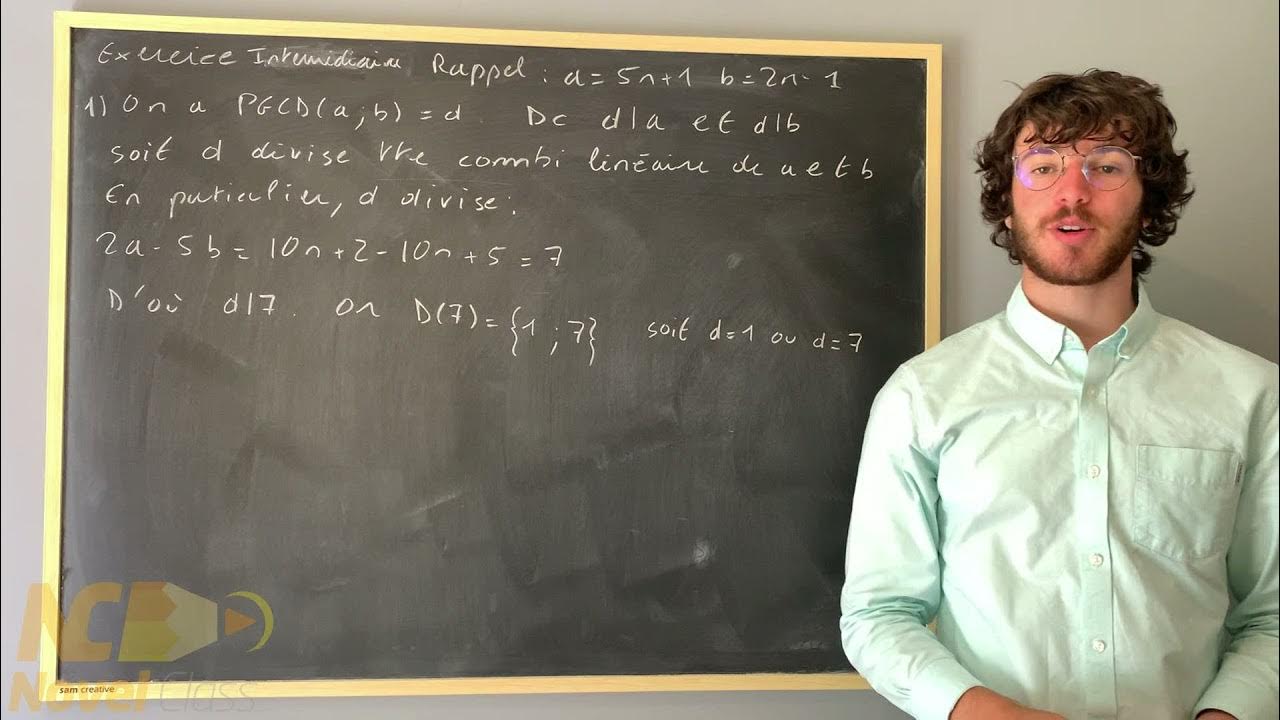 Exercice Intermédiaire Rappel : a = 5n+1 b = 2n-1
1) On a PGCD(a;b) = d. Dc d|a et d|b
soit d divise tte combi linéaire de a et b
En particulier, d divise:
2a - 5b = 10n + 2 - 10n + 5 = 7
D'où d|7. Or D(7) = {1 ; 7} soit d=1 ou d=7
NC
Novel Class
sam creative